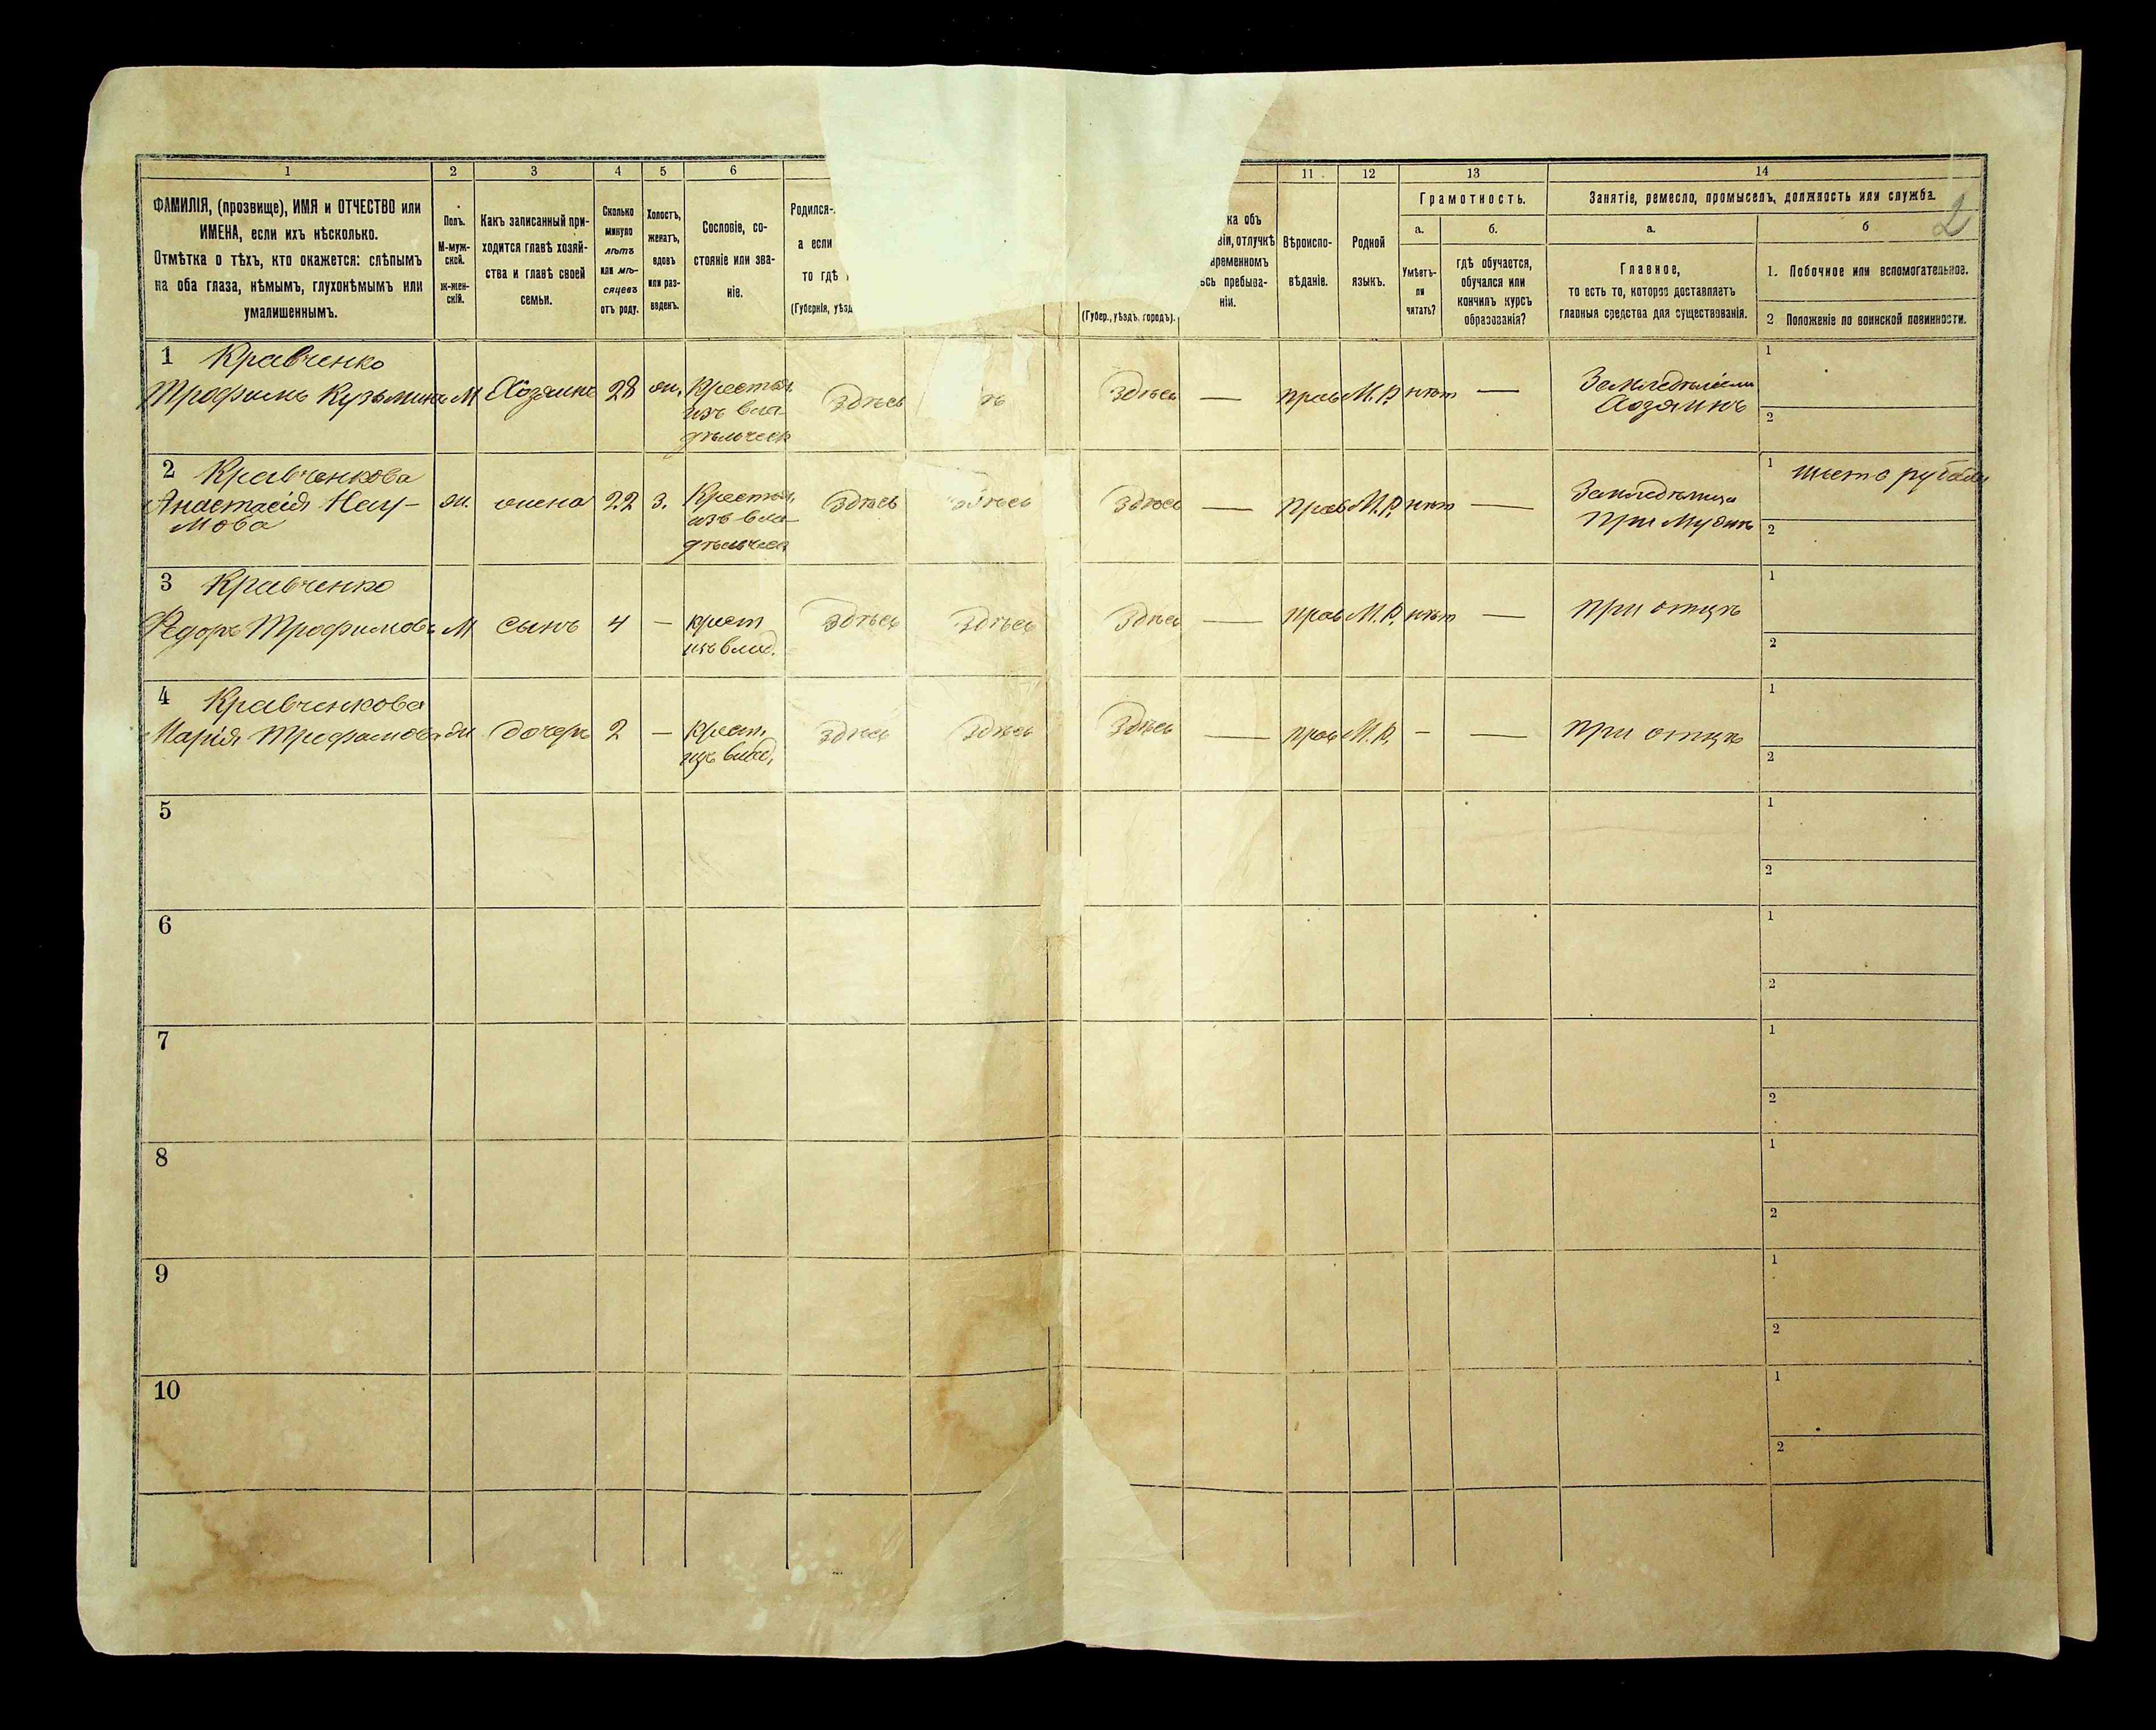 1 2 3 4 5 6 11 12 13 14
ФАМИЛІЯ, (прозвище), ИМЯ и ОТЧЕСТВО или
ИМЕНА, если ихъ нѣсколько.
Отмѣтка о тѣхъ, кто окажется: слѣпымъ
на оба глаза, нѣмымъ, глухонѣмымъ или
умалишеннымъ.
Полъ.
М-муж-
ской.
Ж-жен-
скій.
Какъ записанный при-
ходится главѣ хозяй-
ства и главѣ своей
семьи.
Сколько
минуло
лѣтъ
или мѣ-
сяцевъ
отъ роду.
Холостъ,
женатъ,
вдовъ
или раз-
веденъ.
Сословіе, со-
стояніе или зва-
ніе.
Родился-
а если
то гдѣ
(Губернія, уѣзд
(Губер., уѣздъ. городъ).
ка объ
віи, отлучкѣ
временномъ
сь пребыва-
ніи.
Вѣроиспо-
вѣданіе.
Родной
языкъ.
Грамотность.
а.
Умѣетъ-
ли
читать?
б.
гдѣ обучается,
обучался или
кончилъ курсъ
образованія?
Занятіе, ремесло, промыселъ, должность или служба.
2
а.
Главное,
то есть то, которое доставляетъ
главныя средства для существованія.
б
1. Побочное или вспомогательное.
2 Положеніе по воинской повинности.
1 Кравченко
Трофимъ Кузьминъ М Хозяинъ 28 ж. Крестья. Здѣсь ѣ Здѣсь — прав М.Р. нѣтъ — Земледѣлецъ 1
изъ вла Хозяинъ 2
дѣльческ
2 Кравченкова 1
Анастасія Нау- ж. жена 22 з. Крестья. Здѣсь Здѣсь Здѣсь — прав М.Р. нѣтъ — Земледѣлица
мова изъ вла- при мужѣ 2
дѣльческ
3 Кравченко 1
Федоръ Трофимовъ М сынъ 4 — крест Здѣсь Здѣсь Здѣсь — прав М.Р. нѣтъ — при отцѣ
изъ влад. 2
4 Кравченкова 1
Марія Трофимова ж дочерь 2 — Крест. Здѣсь Здѣсь Здѣсь — прав М.Р. - — при отцѣ
изъ влад. 2
5 1
2
6 1
2
7 1
2
8 1
2
9 1
2
10 1
2